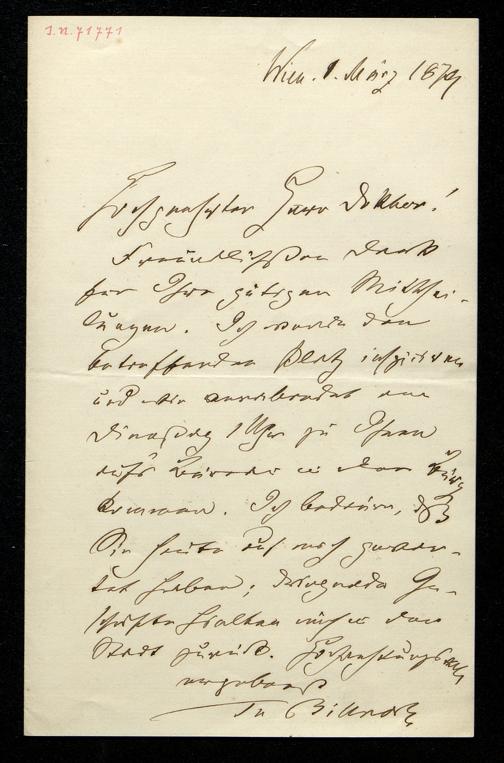 I.N. 71771
Wien. 1. März 1874
Hochgeehrter Herr Doktor!
Freundlichsten Dank
für Ihre gütigen Mitthei-
lungen. Ich werde den
betreffenden Platz inspiciren
und wie verabredet am
Dinstag 1 Uhr zu Ihnen
aufs Bureau in den
kommen. Ich bedaure, daß
Sie heute auf mich gewar-
tet haben; dringende Ge-
schäfte hielten mich in der
Stadt zurück. Hochachtungsvoll
ergebenst
Th Billroth